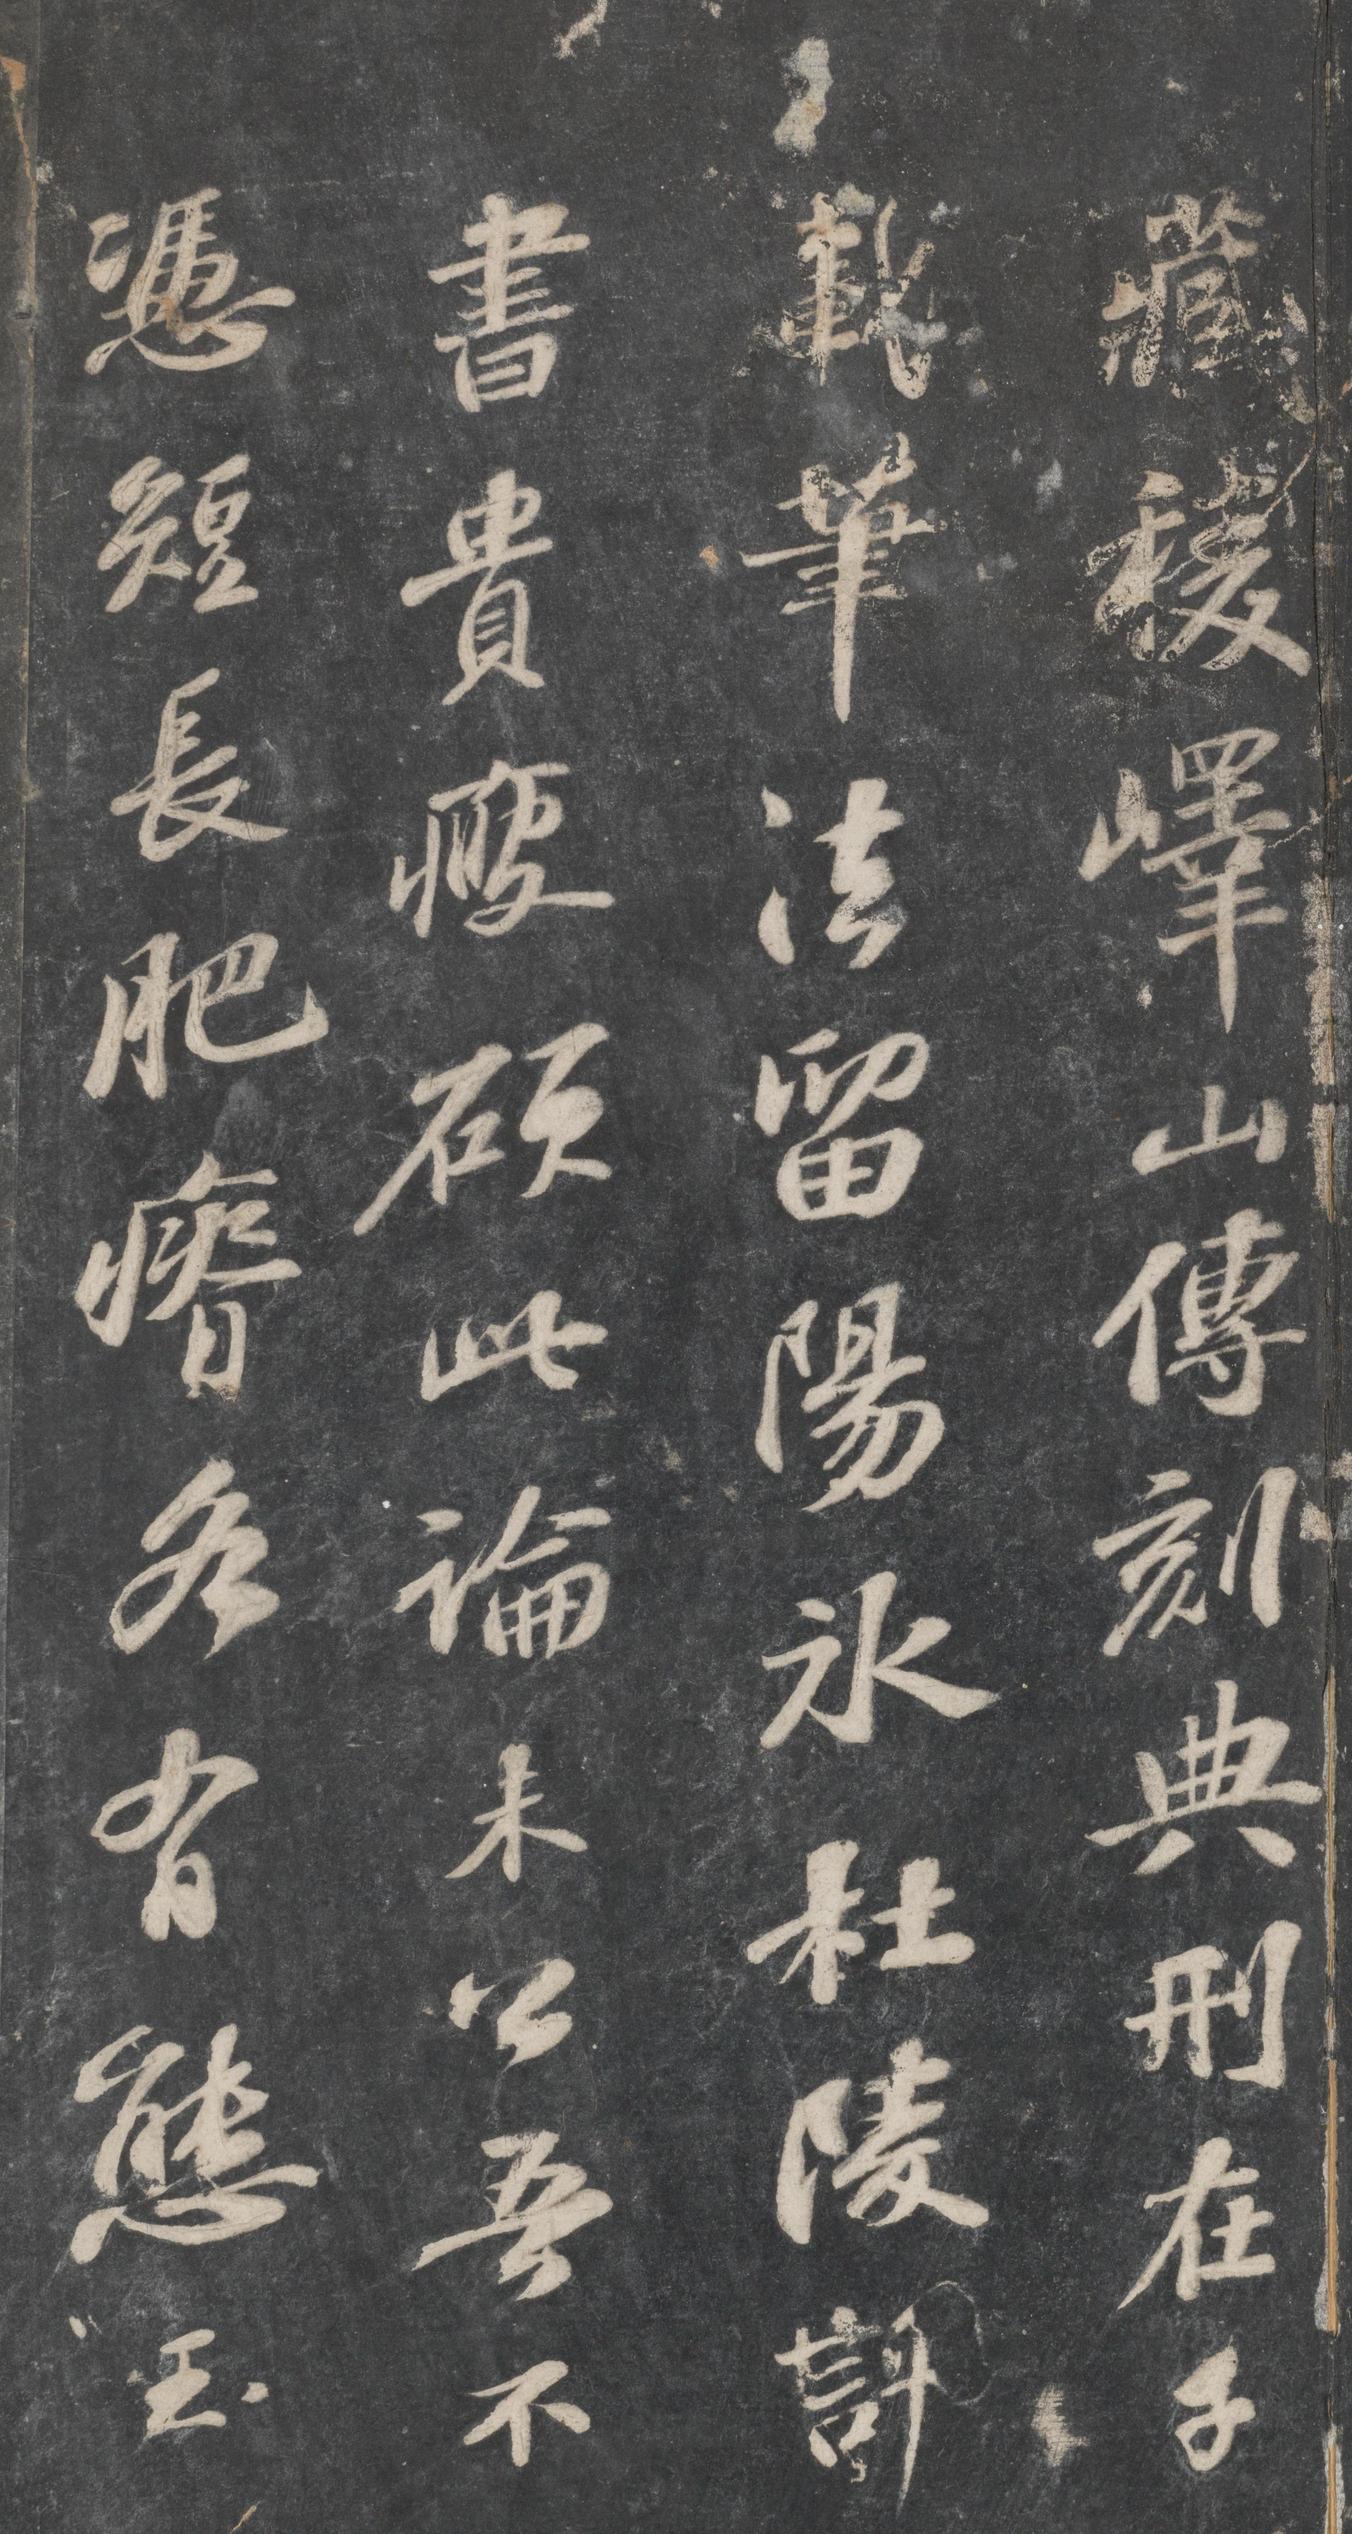 藏稜嶧山傳刻典刑在千
載筆法留陽氷杜陵評
書貴瘦硬此論未公吾不
憑短長肥瘠各有態玉